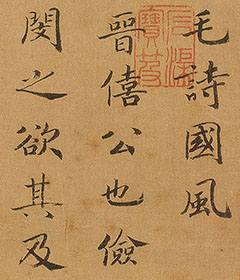 毛詩國風
晉僖公也儉
閔之欲其及